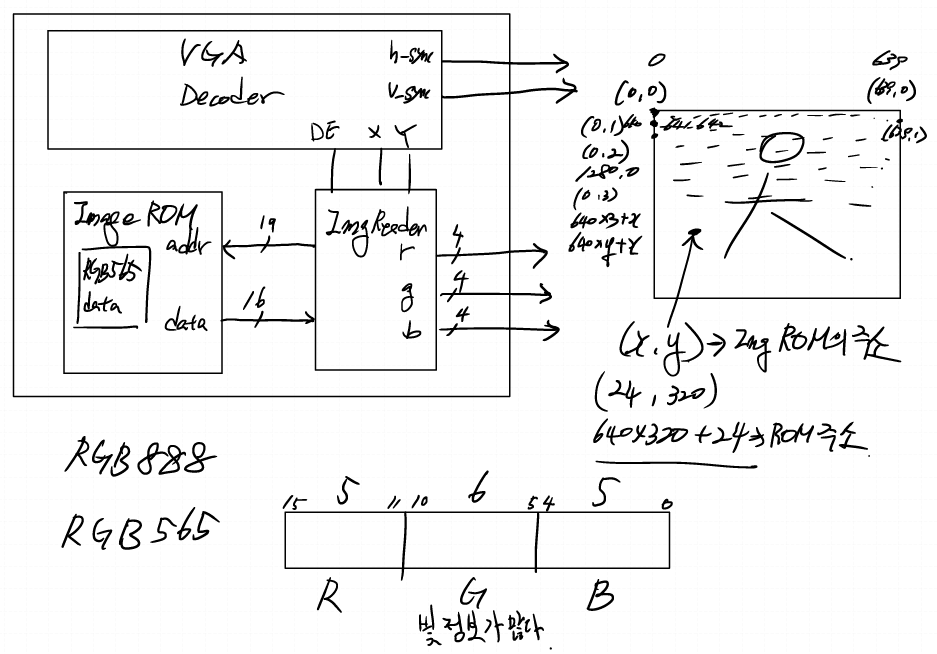 VGA
Decoder
h-sync
v-sync
DE X Y
Image ROM
RGB565
data
addr
data
19
16
ImgReader
r
g
b
4
4
4
0
639
(0,0)
(639,0)
(0,1) 640 641, 642
(639,1)
(0,2)
1280,0
(0,3)
640×3+x
640×y+x
(x,y) → Img ROM의 주소
(24, 320)
640×320+24 → ROM 주소
RGB888
RGB565
5 6 5
15 11 10 5 4 0
R G B
빛 정보가 많다.